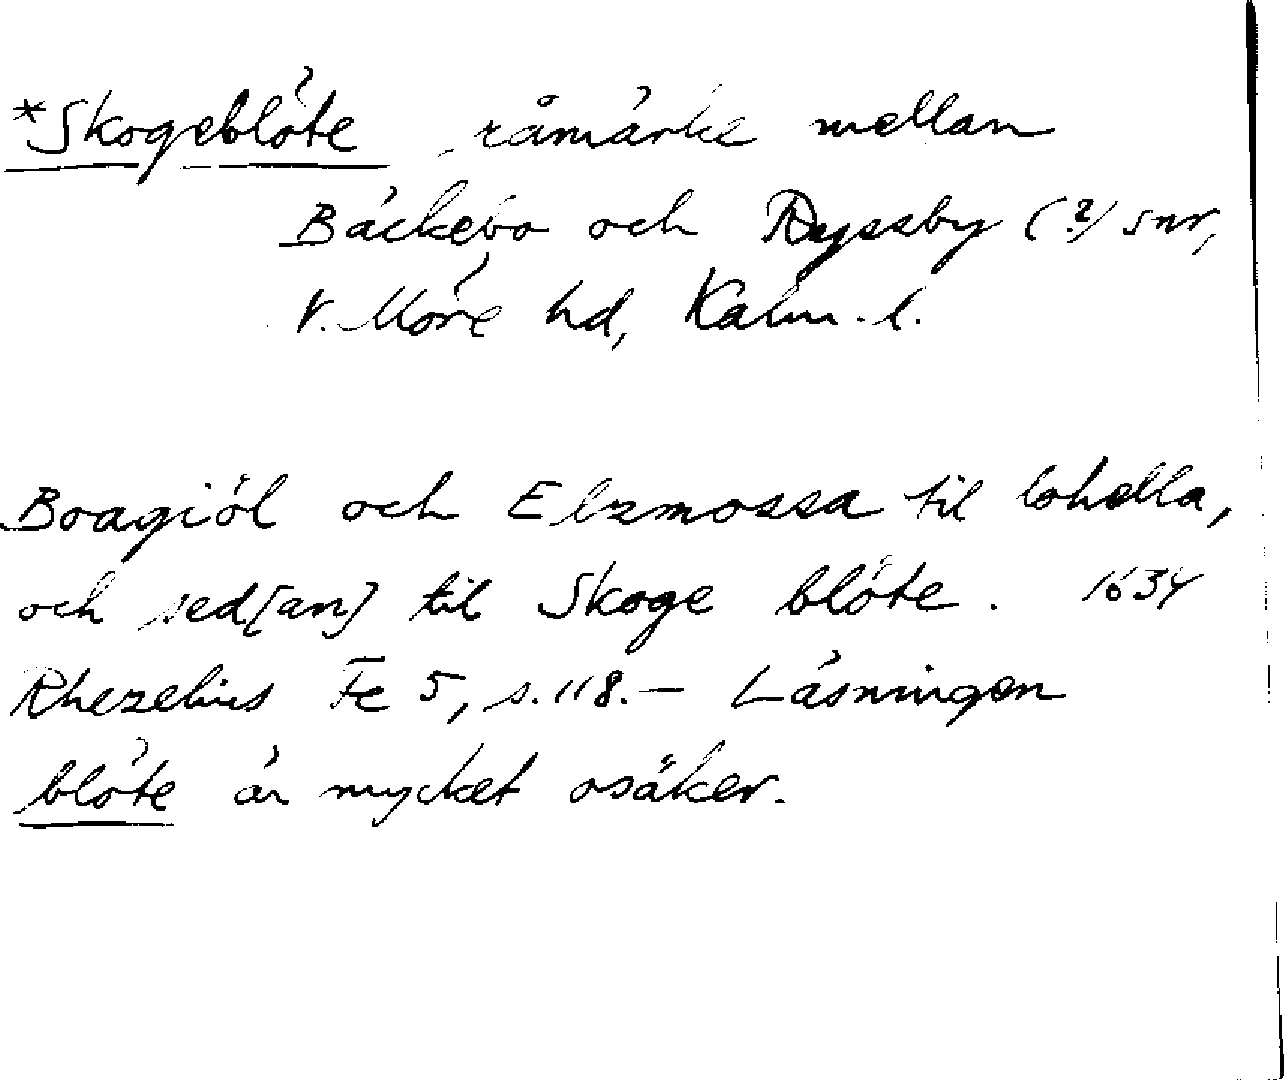 *Skogeblöte, råmärke mellan
Bäckebo och Ryssby (?) snr,
N. Möre hd, Kalm. l.
Boagiöl och Elzmossa til lohella,
och sed[an] til Skoge blöte. 1634
Rhezelius Fc 5, s. 118. – Läsningen
blöte är mycket osäker.